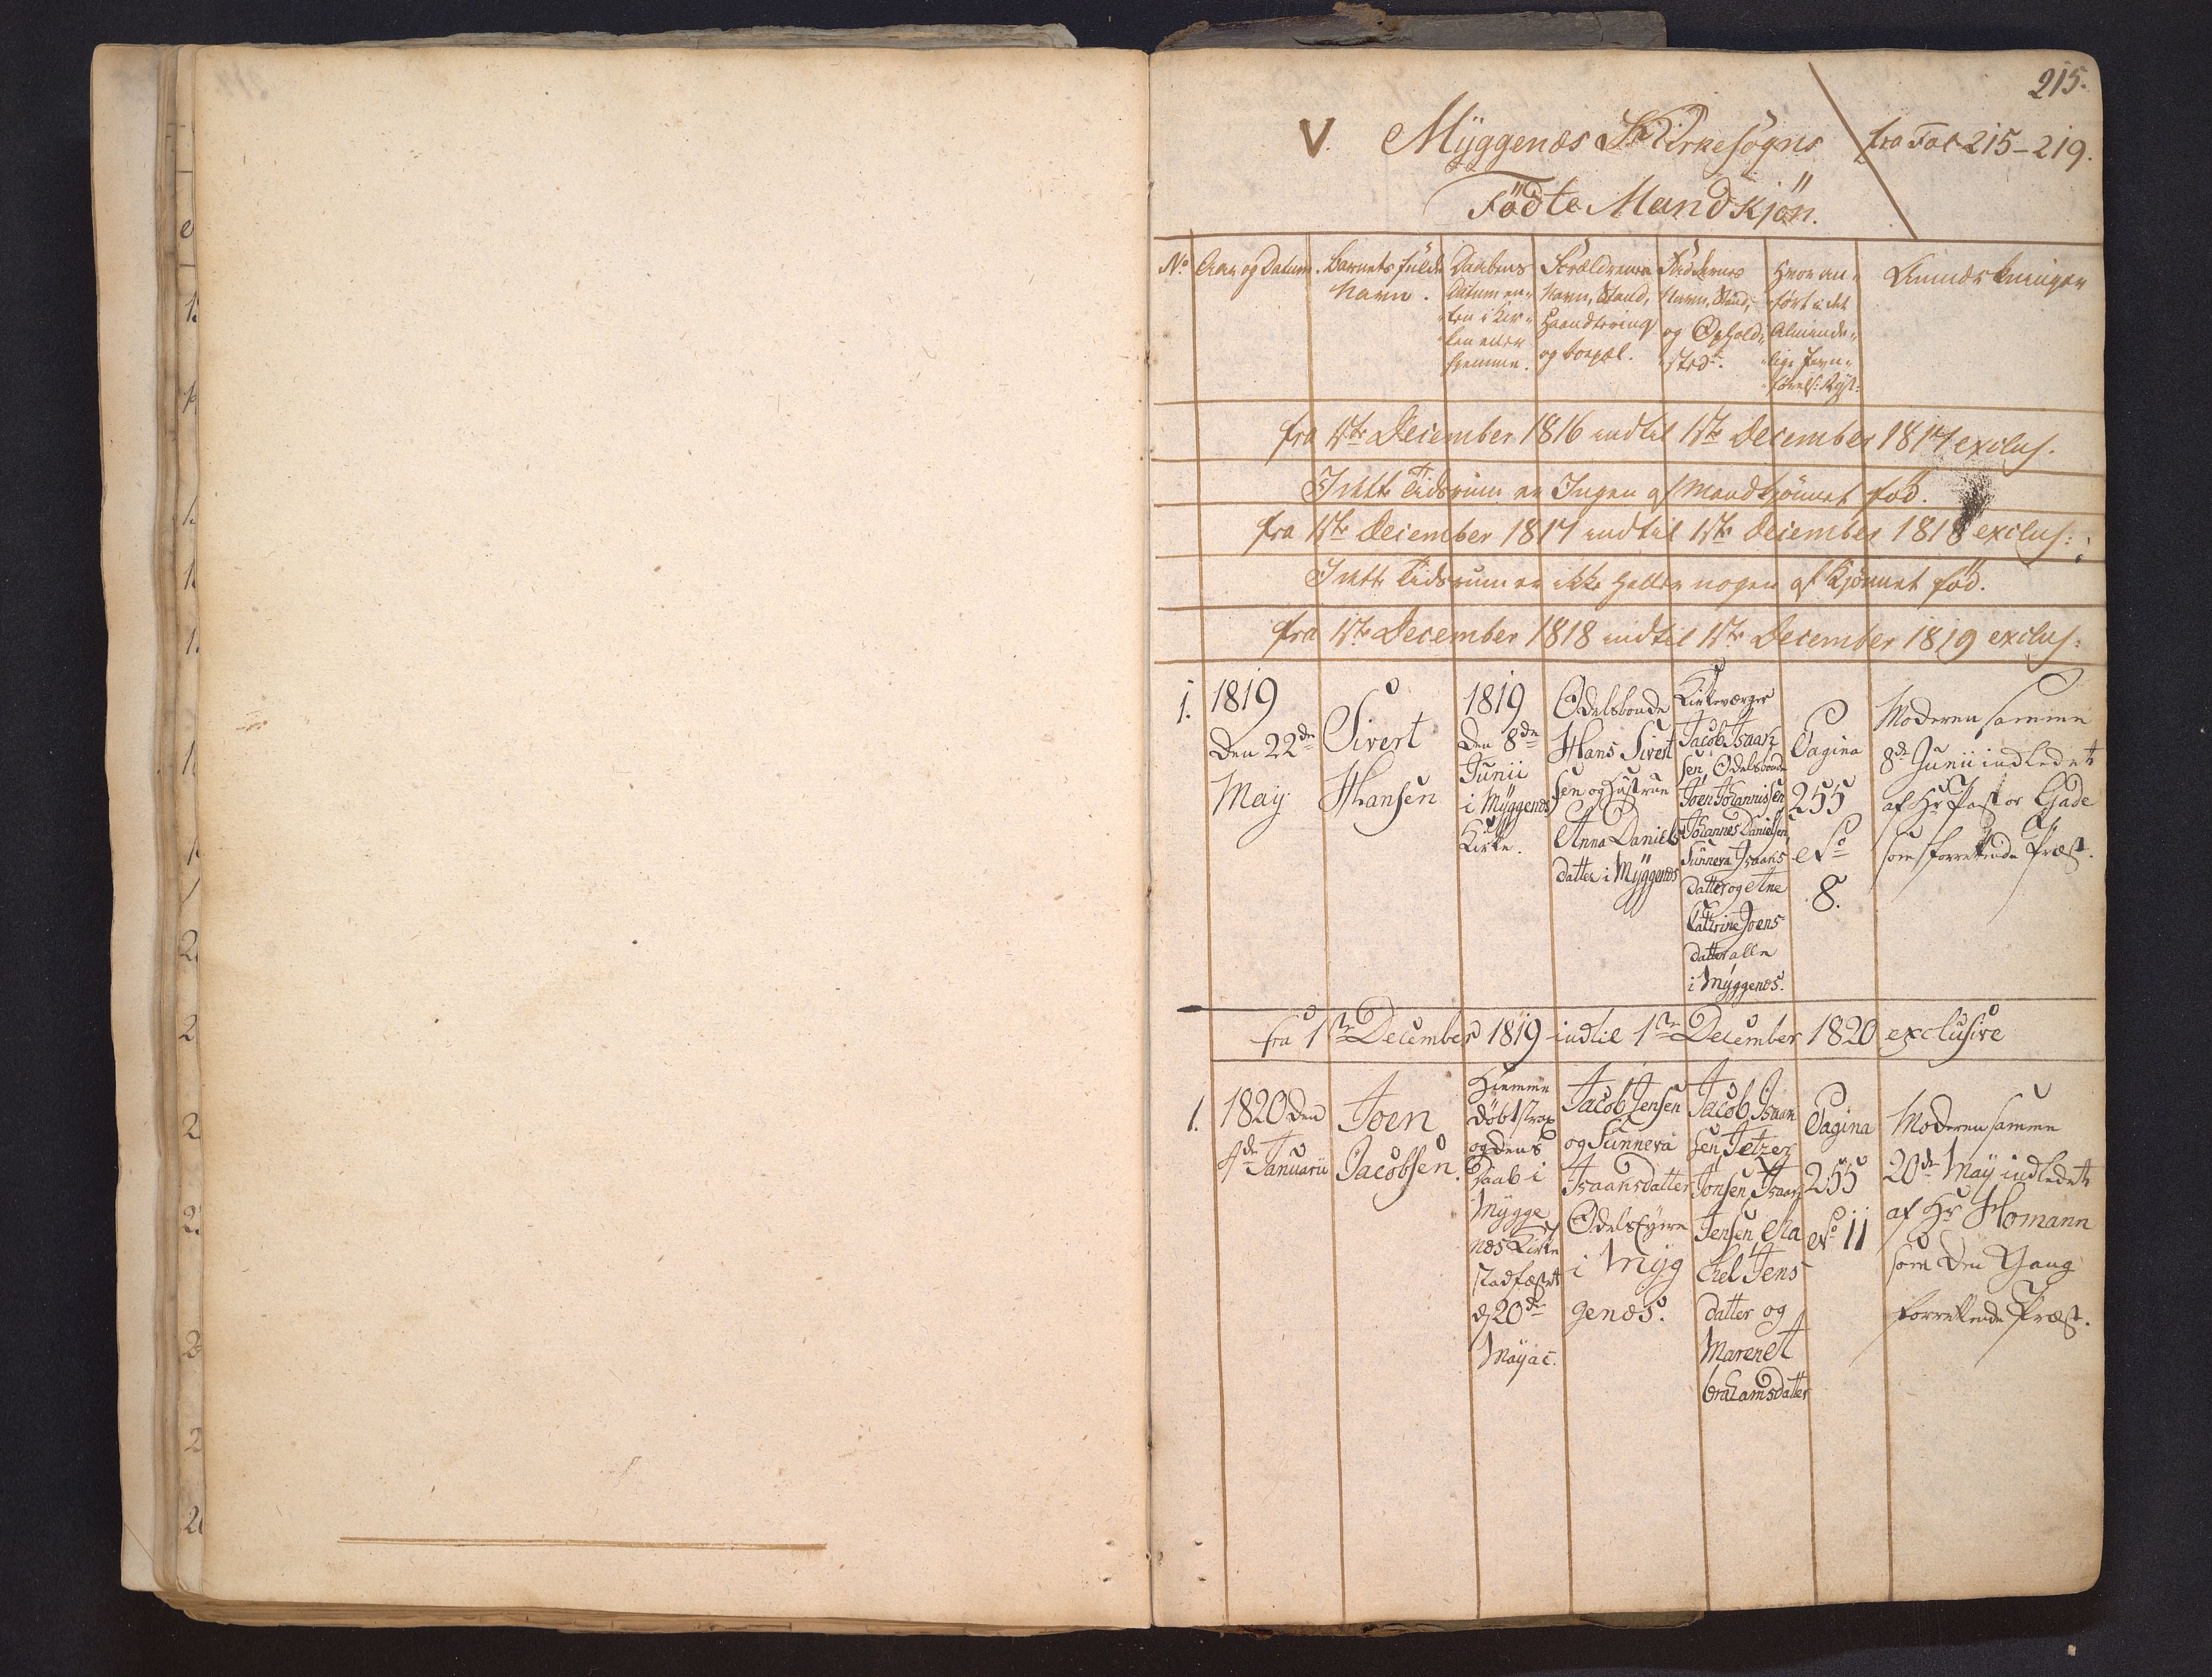 215.
V. Mÿggenæs Kirkesogns fra Fol 215-219.
Födte Mandkjön.
No
Aar og Datum.
Barnets fulde
Navn.
Daabens
Datum en-
ten i Kir-
ken eller
hjemme.
Forældrenes
Navn, Stand,
Haandtering
og boepæl.
Faddernes
Navn, Stand,
og Ophold-
sted.
Hvor an-
ført i det
Alminde-
lige Jevn-
førelses Regist:
Anmærkninger
fra 1ste December 1816 indtil 1ste December 1817 exclus.
I dette Tidsrum er Ingen af Mandkjönnet föd.
fra 1ste December 1817 indtil 1ste December 1818 exclus:
I dette Tidsrum er ikke heller nogen af Kjönnet föd.
fra 1ste December 1818 indtil 1ste December 1819 exclus:
1.
1819
Den 22de
Maÿ
Sivert
Hansen
1819
Den 8de
Junii
i Mÿggenæs
Kirke.
Odelsbonde
Hans Sivert
sen og Hustrue
Anna Daniels
datter i Mÿggenæs
Kirkeværger
Jacob Isaak
sen, Odelsbonde
Joen Johannissen
Johannes Danielsen
Sunneva Isaaks
datter og Ane
Catrine Joens
datter alle
i Mÿggenæs.
Pagina
255
No
8.
Moderen samme
8de Junii indledet
af Hr Pastor Gade
som forrettende Præst.
fra 1ste December 1819 indtil 1ste December 1820 exclusive
1.
1820 den
4de Januarii
Joen
Jacobsen.
Hiemme
döbt strax
og dens
Daab i
Mÿgge
næs Kirke
stadfæstet
d 20de
Maÿ a c.
Jacob Jensen
og Sunneva
Isaaksdatter
Odelsfolk
i Mÿg
genæs.
Jacob Isaak
sen, Petzer
Jonsen, Isaak
Jensen, Ra
chel Jens
datter og
Maren A
brahamsdatter
Pagina
255
No 11
Moderen samme
20de Maÿ indledet
af Hr Homann
som den Gang
forrettende Præst.